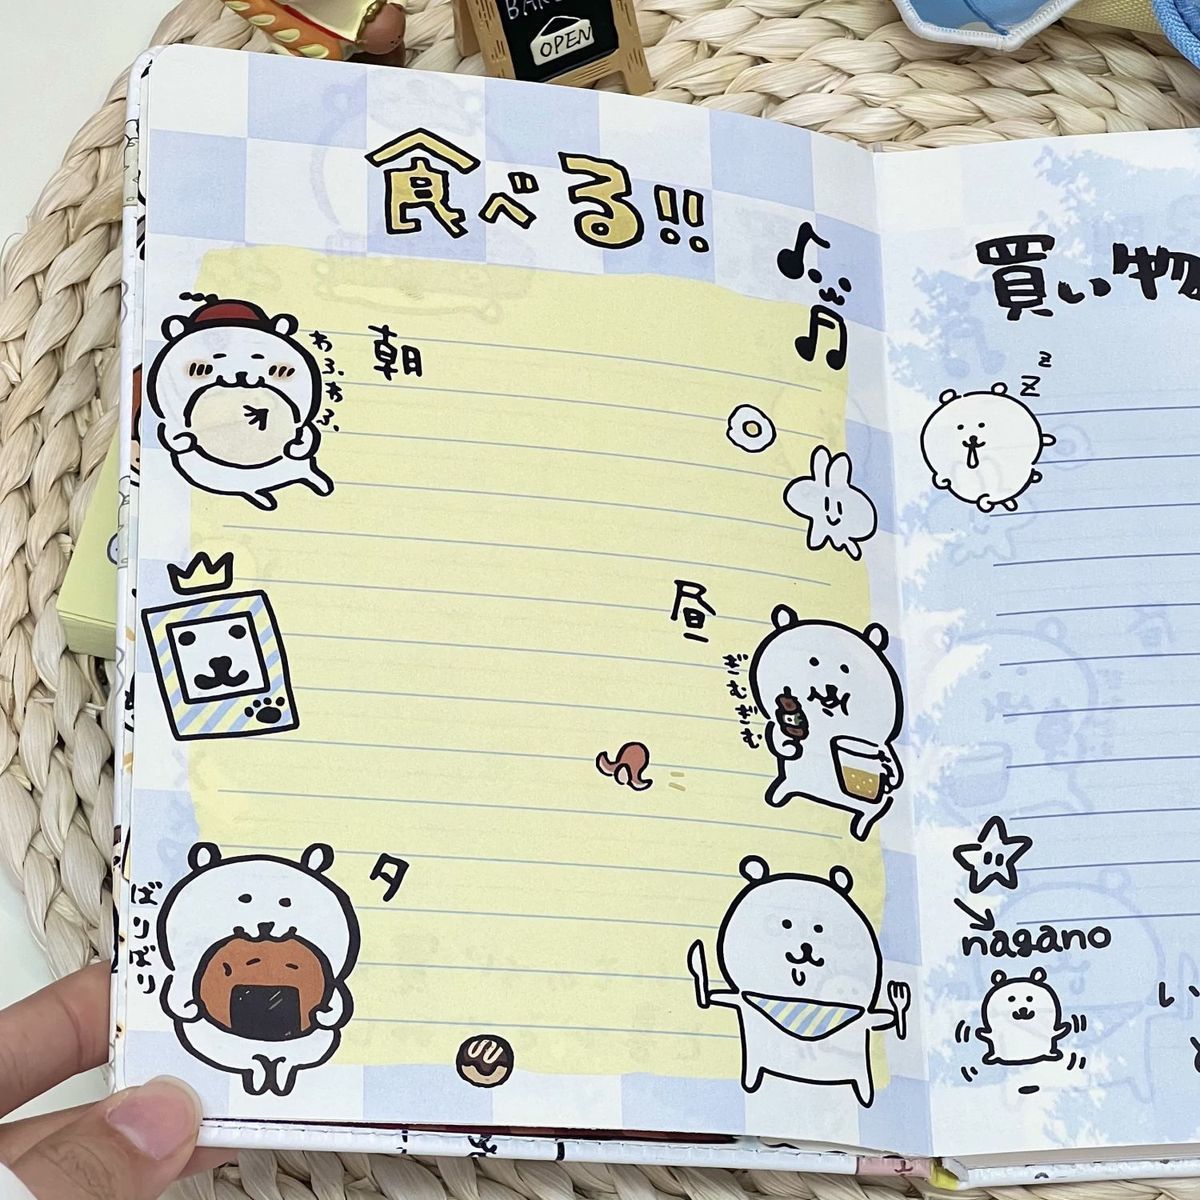 OPEN
食べる!!
買い物
朝
あふ、あふ、
z
z
昼
ぎむぎむ
夕
ばりばり
nagano